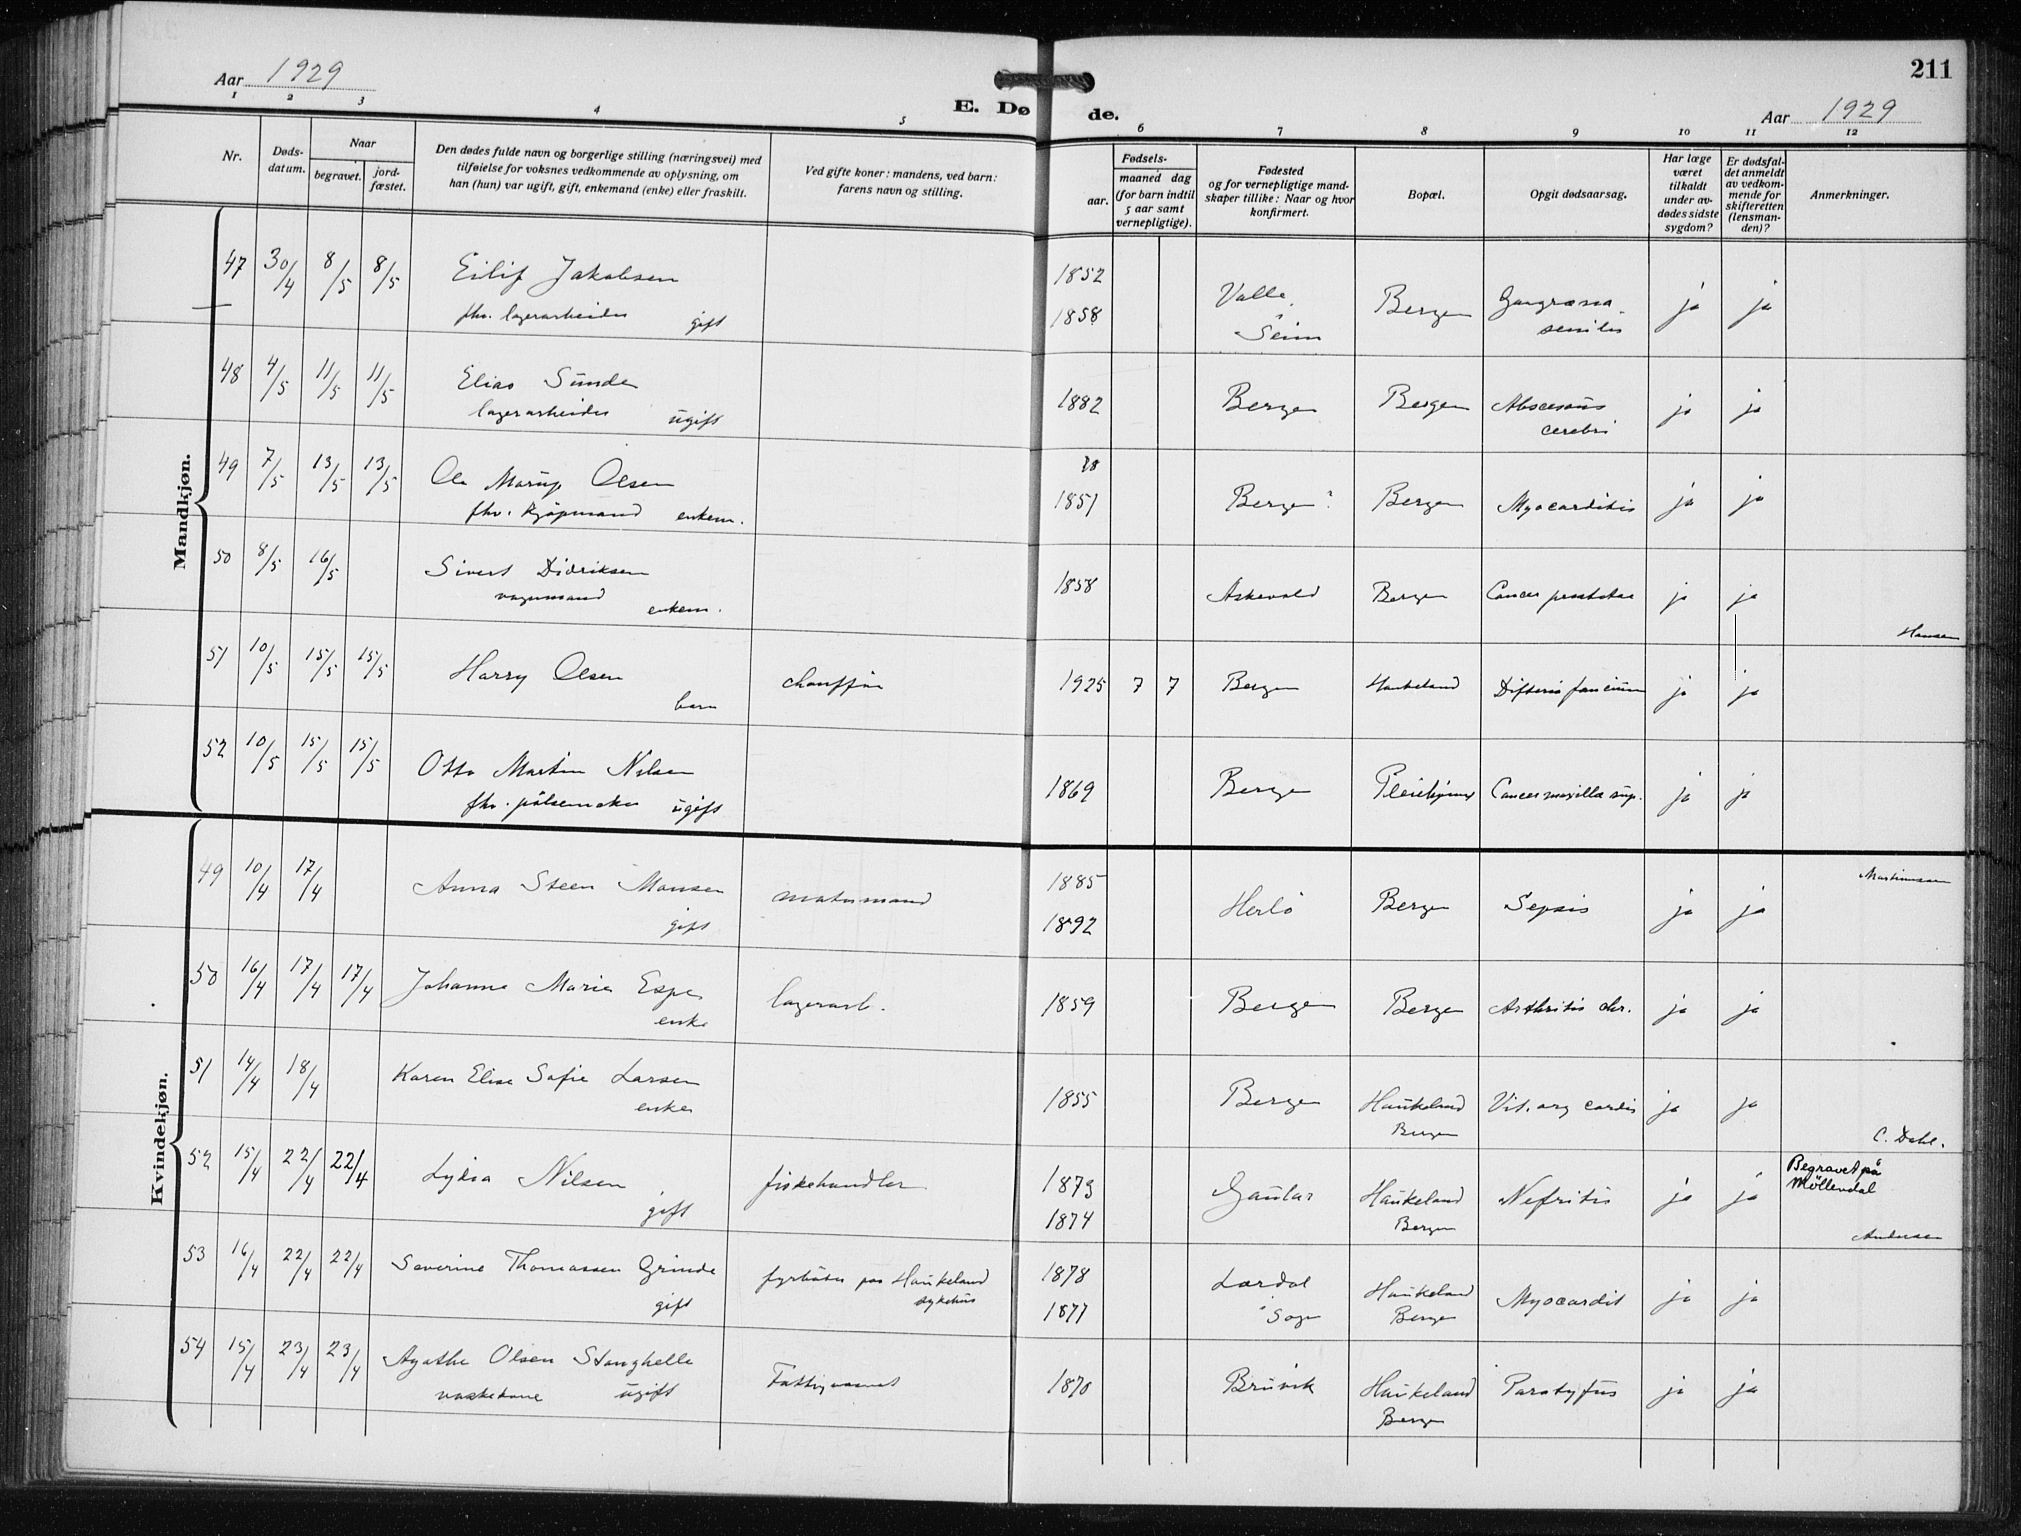 211
Aar 1929
Aar 1929
E. Dø de.
1 2 3 4 5 6 7 8 9 10 11 12
Nr.
Døds-
datum.
Naar
begravet.
jord-
fæstet.
Den dødes fulde navn og borgerlige stilling (næringsvei) med
tilføielse for voksnes vedkommende av oplysning, om
han (hun) var ugift, gift, enkemand (enke) eller fraskilt.
Ved gifte koner: mandens, ved barn:
farens navn og stilling.
Fødsels-
aar.
maaned dag
(for barn indtil
5 aar samt
vernepligtige).
Fødested
og for vernepligtige mand-
skaper tillike: Naar og hvor
konfirmert.
Bopæl.
Opgit dødsaarsag.
Har læge
været
tilkaldt
under av-
dødes sidste
sygdom?
Er dødsfal-
det anmeldt
av vedkom-
mende for
skifteretten
(lensman-
den)?
Anmerkninger.
Mandkjøn.
47 30/4 8/5 8/5 Eilif Jakobsen 1852 Valle, Bergen Gangræna ja ja
fhv. lagerarbeider gift 1858 Seim senilis
48 4/5 11/5 11/5 Elias Sunde 1882 Bergen Bergen Abscessus ja ja
lagerarbeider ugift cerebri
49 7/5 13/5 13/5 Ole Marup Olsen 1851 Bergen? Bergen Myocarditis ja ja
fhv. kjøpmand enkem.
50 8/5 16/5 Sivert Didriksen 1858 Askevold Bergen Cancer prostatae ja ja
vognmand enkem.
Hansen
51 10/5 15/5 15/5 Harry Olsen chauffør 1925 7 7 Bergen Haukeland Difteria faucium ja ja
barn
52 10/5 15/5 15/5 Otto Martin Nilsen 1869 Bergen Pleiehjemmet Cancer maxilla sup. ja ja
fhv. pølsemaker ugift
Kvindekjøn.
49 10/4 17/4 Anna Steen Monsen matrosmand 1885 Herlö Bergen Sepsis ja ja Martinussen
gift 1892
50 16/4 17/4 17/4 Johanne Marie Espe lagerarb. 1859 Bergen Bergen Arthritis chr. ja ja
enke
51 14/4 18/4 Karen Elise Sofie Larsen 1855 Bergen Haukeland Vit. org cordis ja ja
enke Bergen
C. Dahl.
52 15/4 22/4 22/4 Lydia Nilsen fiskehandler 1873 Gaular Haukeland Nefritis ja ja Begravet på
Möllendal
gift 1874 Bergen
Andersen
53 16/4 22/4 22/4 Severine Thomassen Grinde fyrbøter paa Haukeland 1878 Lærdal Haukeland Myocardit ja ja
gift sykehus 1877 i Sogn Bergen
54 15/4 23/4 23/4 Agathe Olsen Stanghelle Fattigvæsnet 1870 Bruvik Haukeland Paratyfus ja ja
vaskekone ugift Bergen